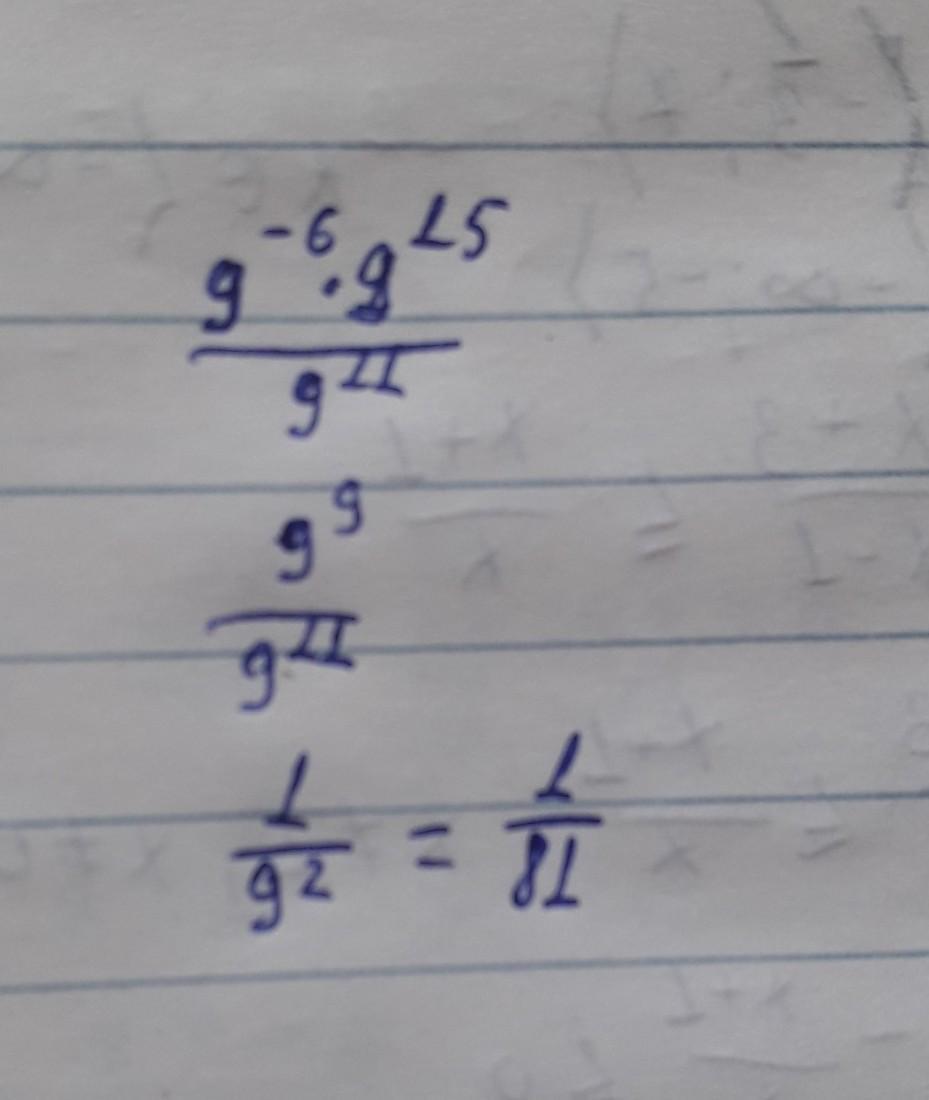 9⁻⁶·9¹⁵
9¹¹
9⁹
9¹¹
1/9² = 1/81